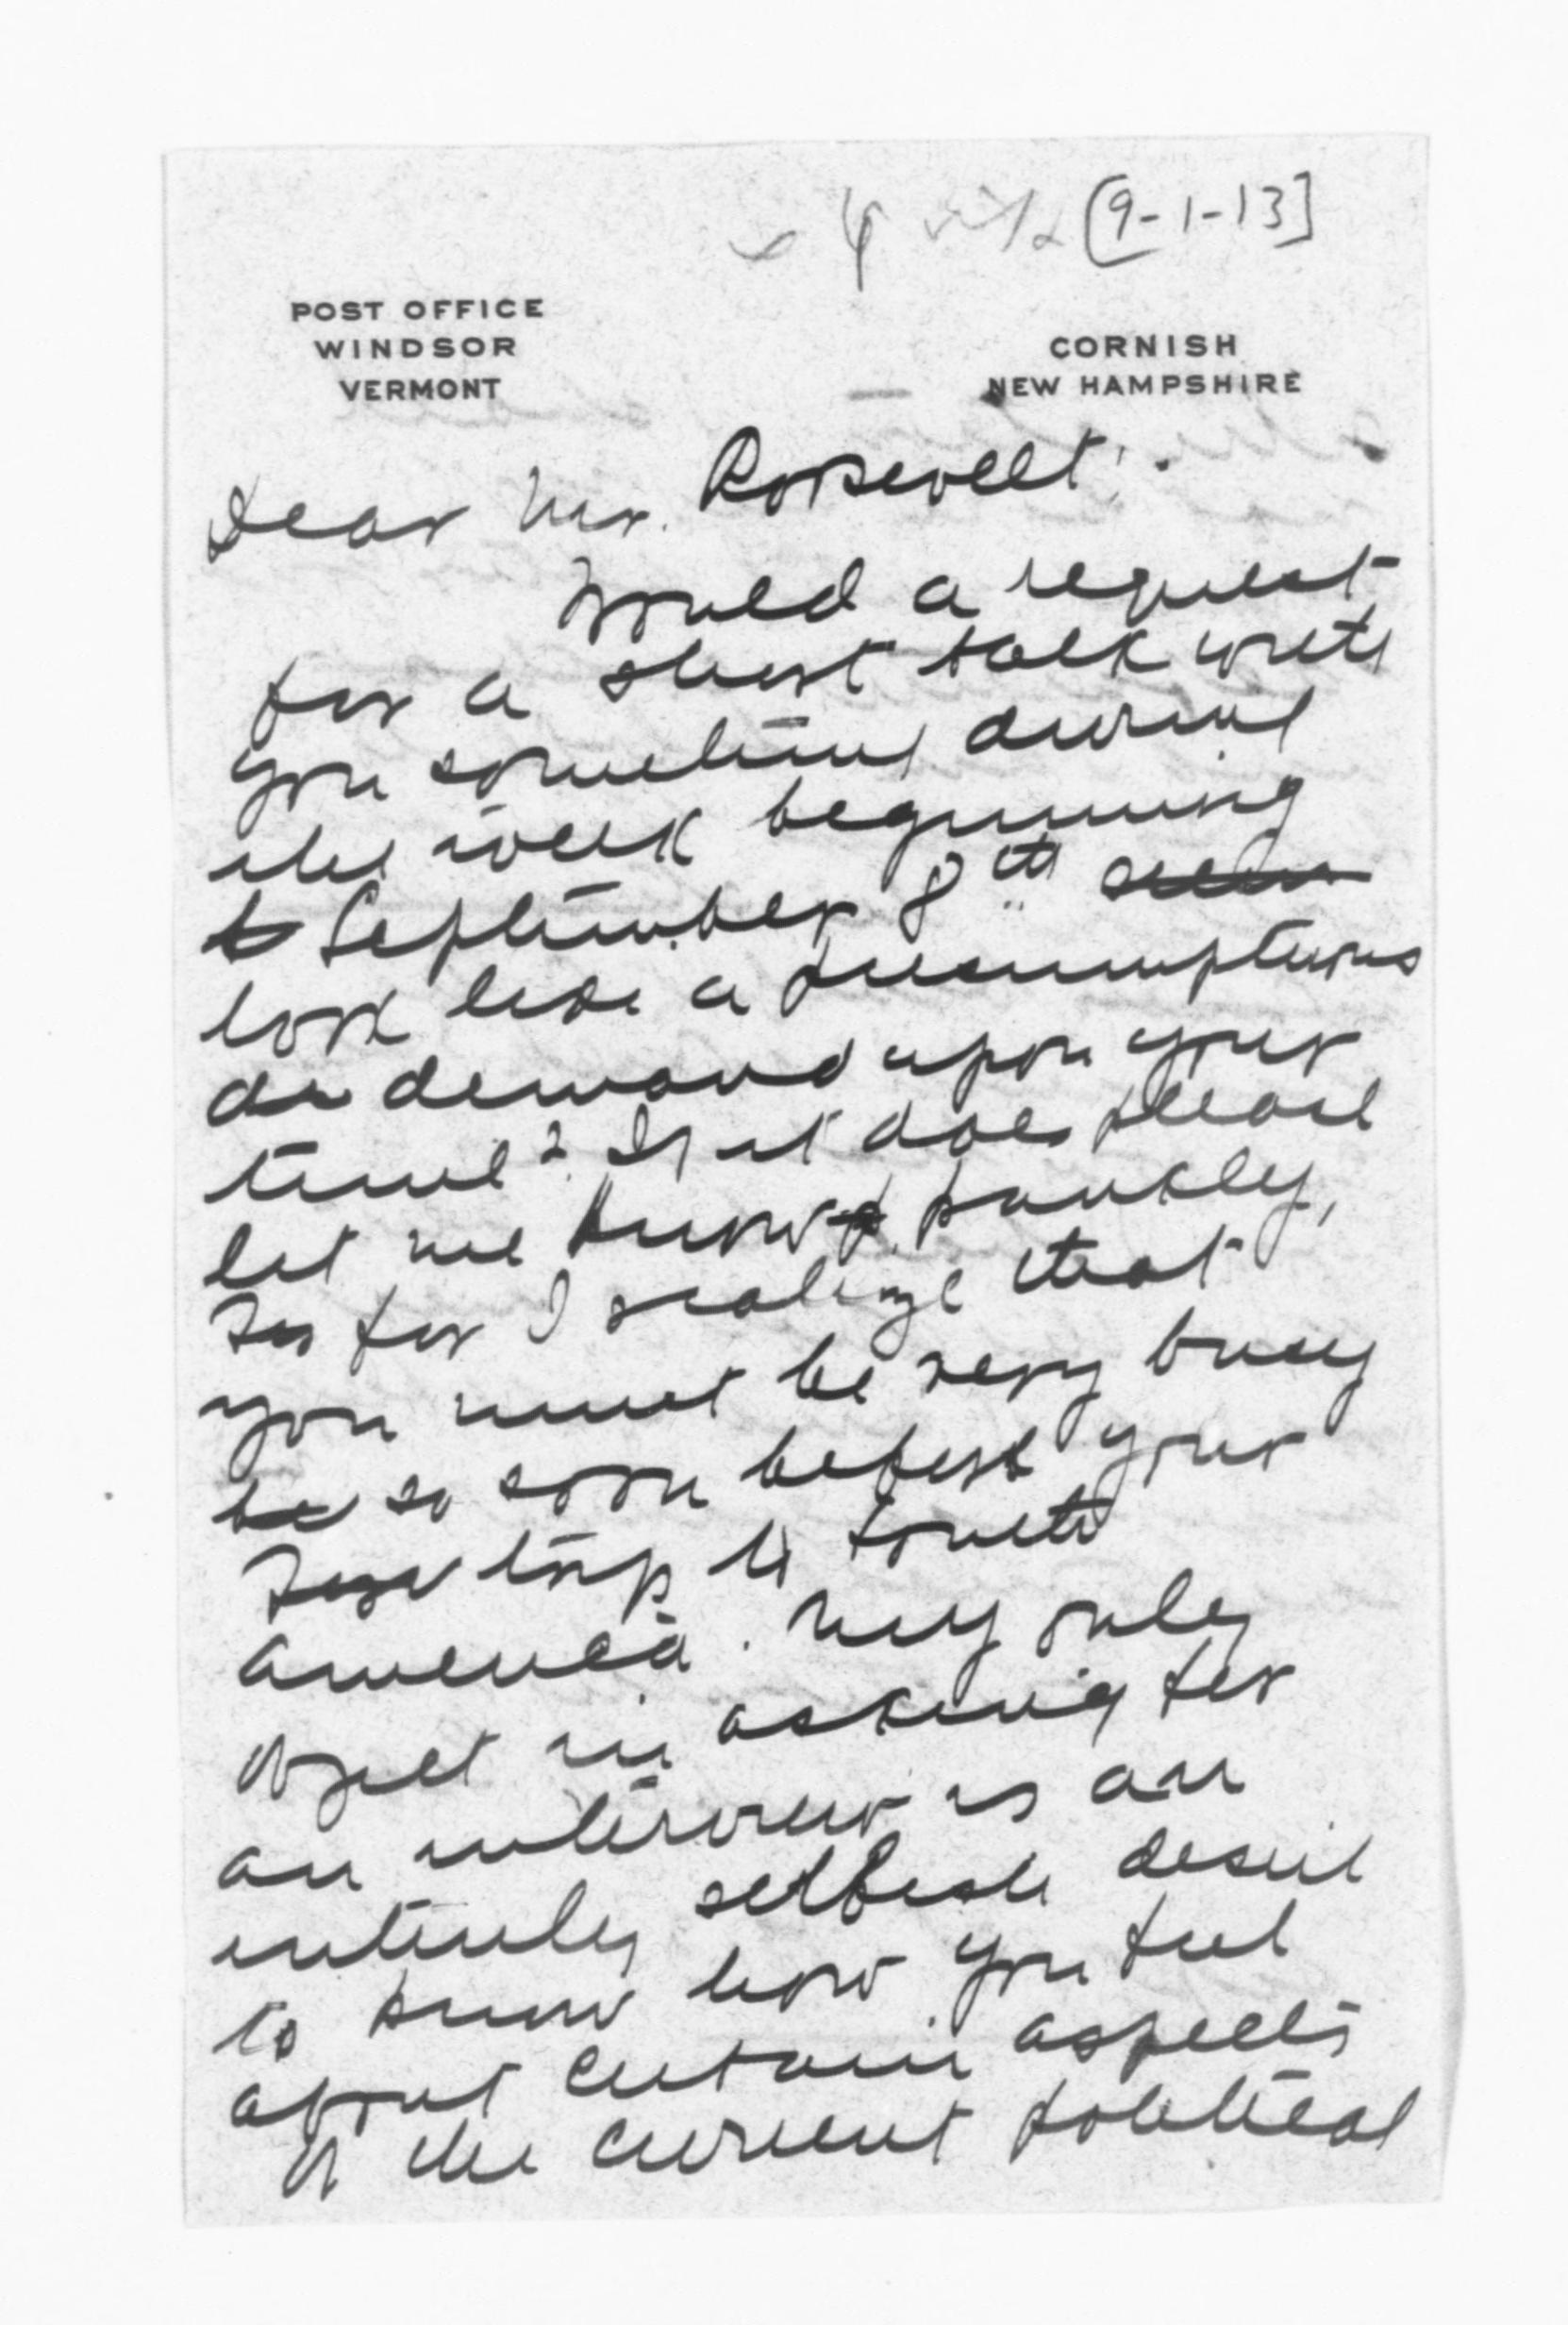 [9-1-13]
POST OFFICE
WINDSOR
VERMONT
CORNISH
NEW HAMPSHIRE
Dear Mr. Roosevelt:
Would a request
for a short talk with
you sometime during
the week beginning
September 8th seem
look like a presumptuous
demand upon your
time? If it does please
let me know frankly,
for I realize that
you must be very busy
so soon before your
trip to South
America. My only
object in asking for
an interview is an
entirely selfish desire
to know how you feel
about certain aspects
of the current political